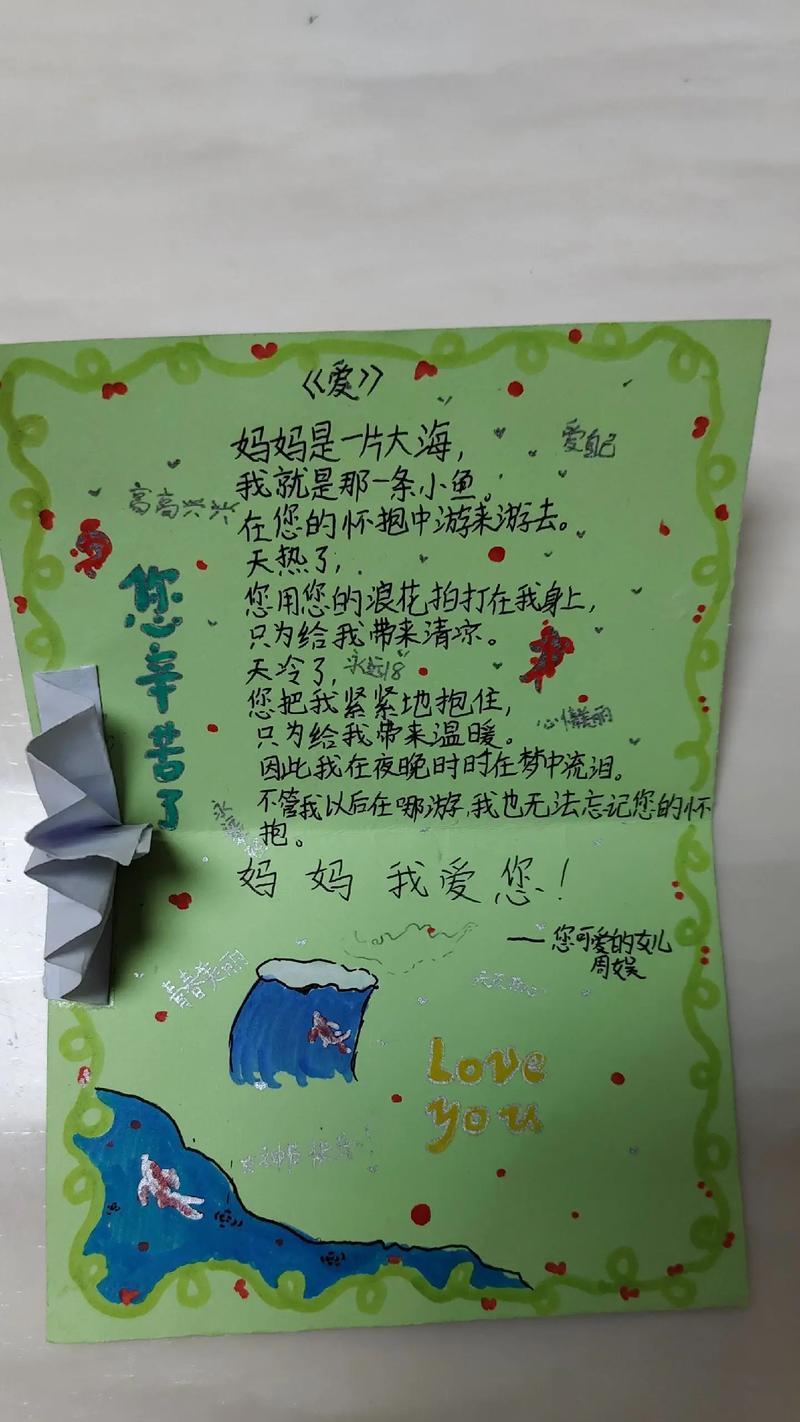 《爱》
妈妈是一片大海，
爱自己
我就是那一条小鱼。
高高兴兴
在您的怀抱中游来游去。
天热了，
您用您的浪花拍打在我身上，
只为给我带来清凉。
天冷了，
永远18
您把我紧紧地抱住，
心情美丽
只为给我带来温暖。
因此我在夜晚时时在梦中流泪。
不管我以后在哪游，我也无法忘记您的怀
抱。
您辛苦了
妈妈我爱您！
——您可爱的女儿
周娱
青春美丽
Love
you
女神节快乐！